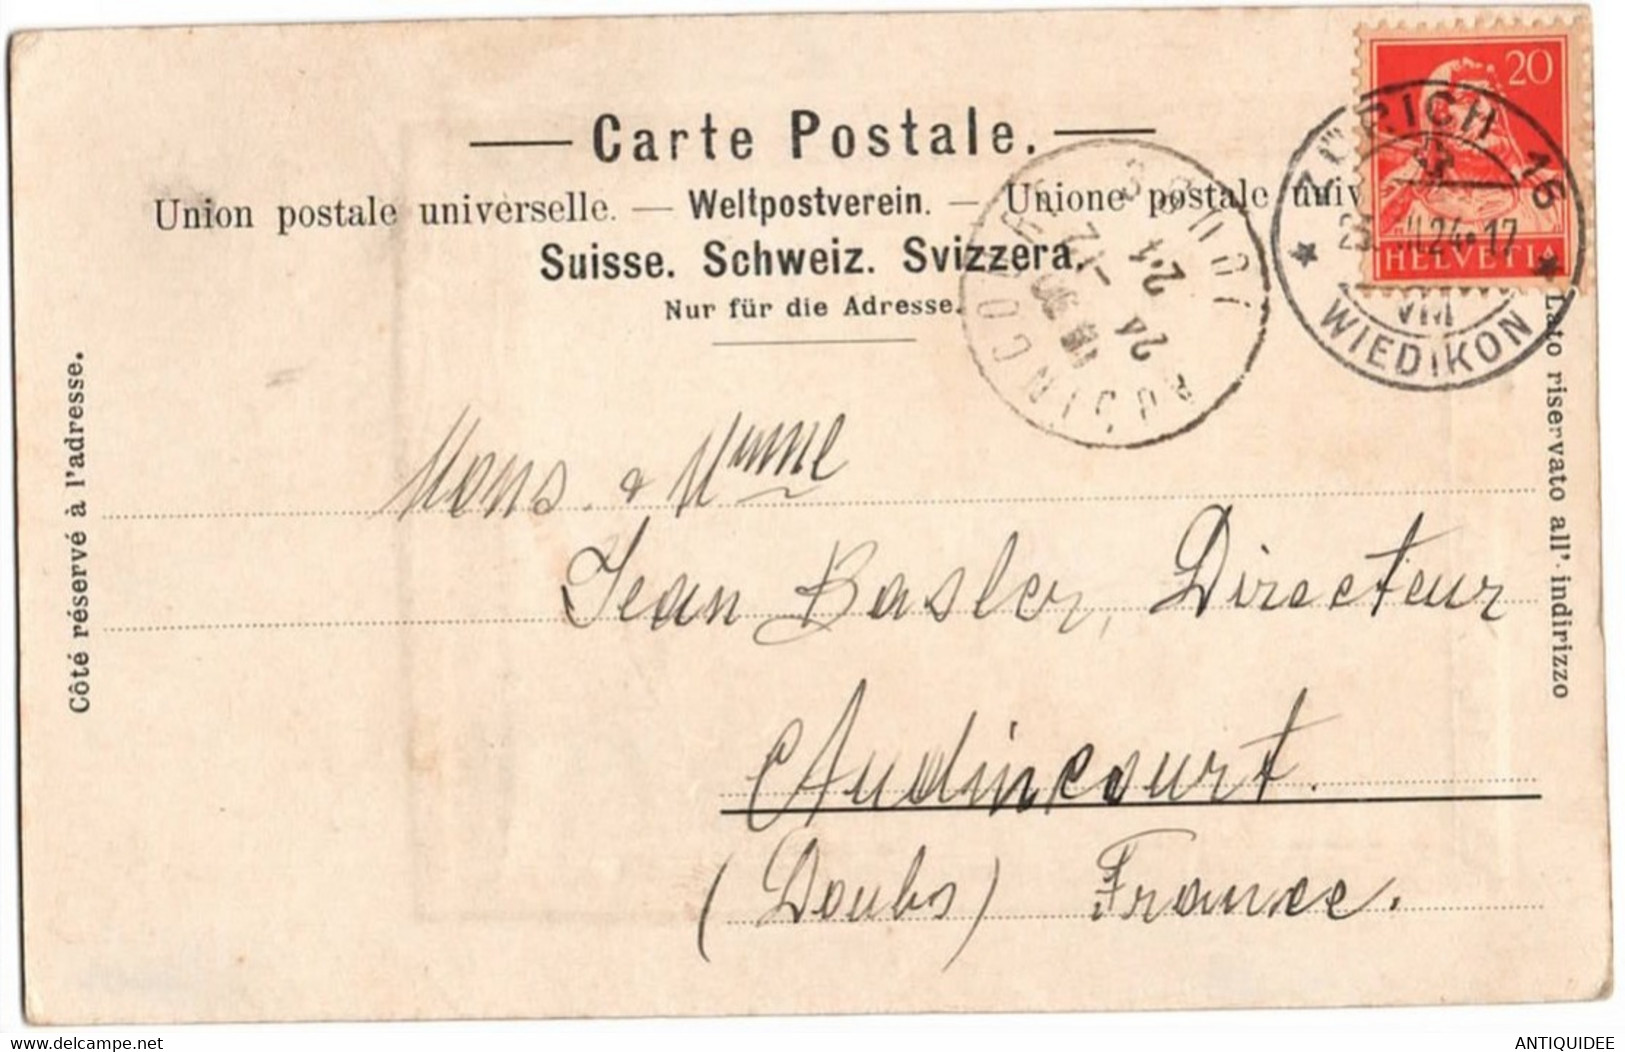 Carte Postale.
Union postale universelle. — Weltpostverein. — Unione postale univ
Suisse. Schweiz. Svizzera.
Nur für die Adresse.
20
HELVETIA
ZÜRICH 16
VIII.24.17
VIII
WIEDIKON
AUDINCOURT
DOUBS
24
Côté réservé à l'adresse.
Lato riservato all' indirizzo
Mons. & Mme
Jean Basler, Directeur
Audincourt.
(Doubs) France.
www.delcampe.net
ANTIQUIDEE